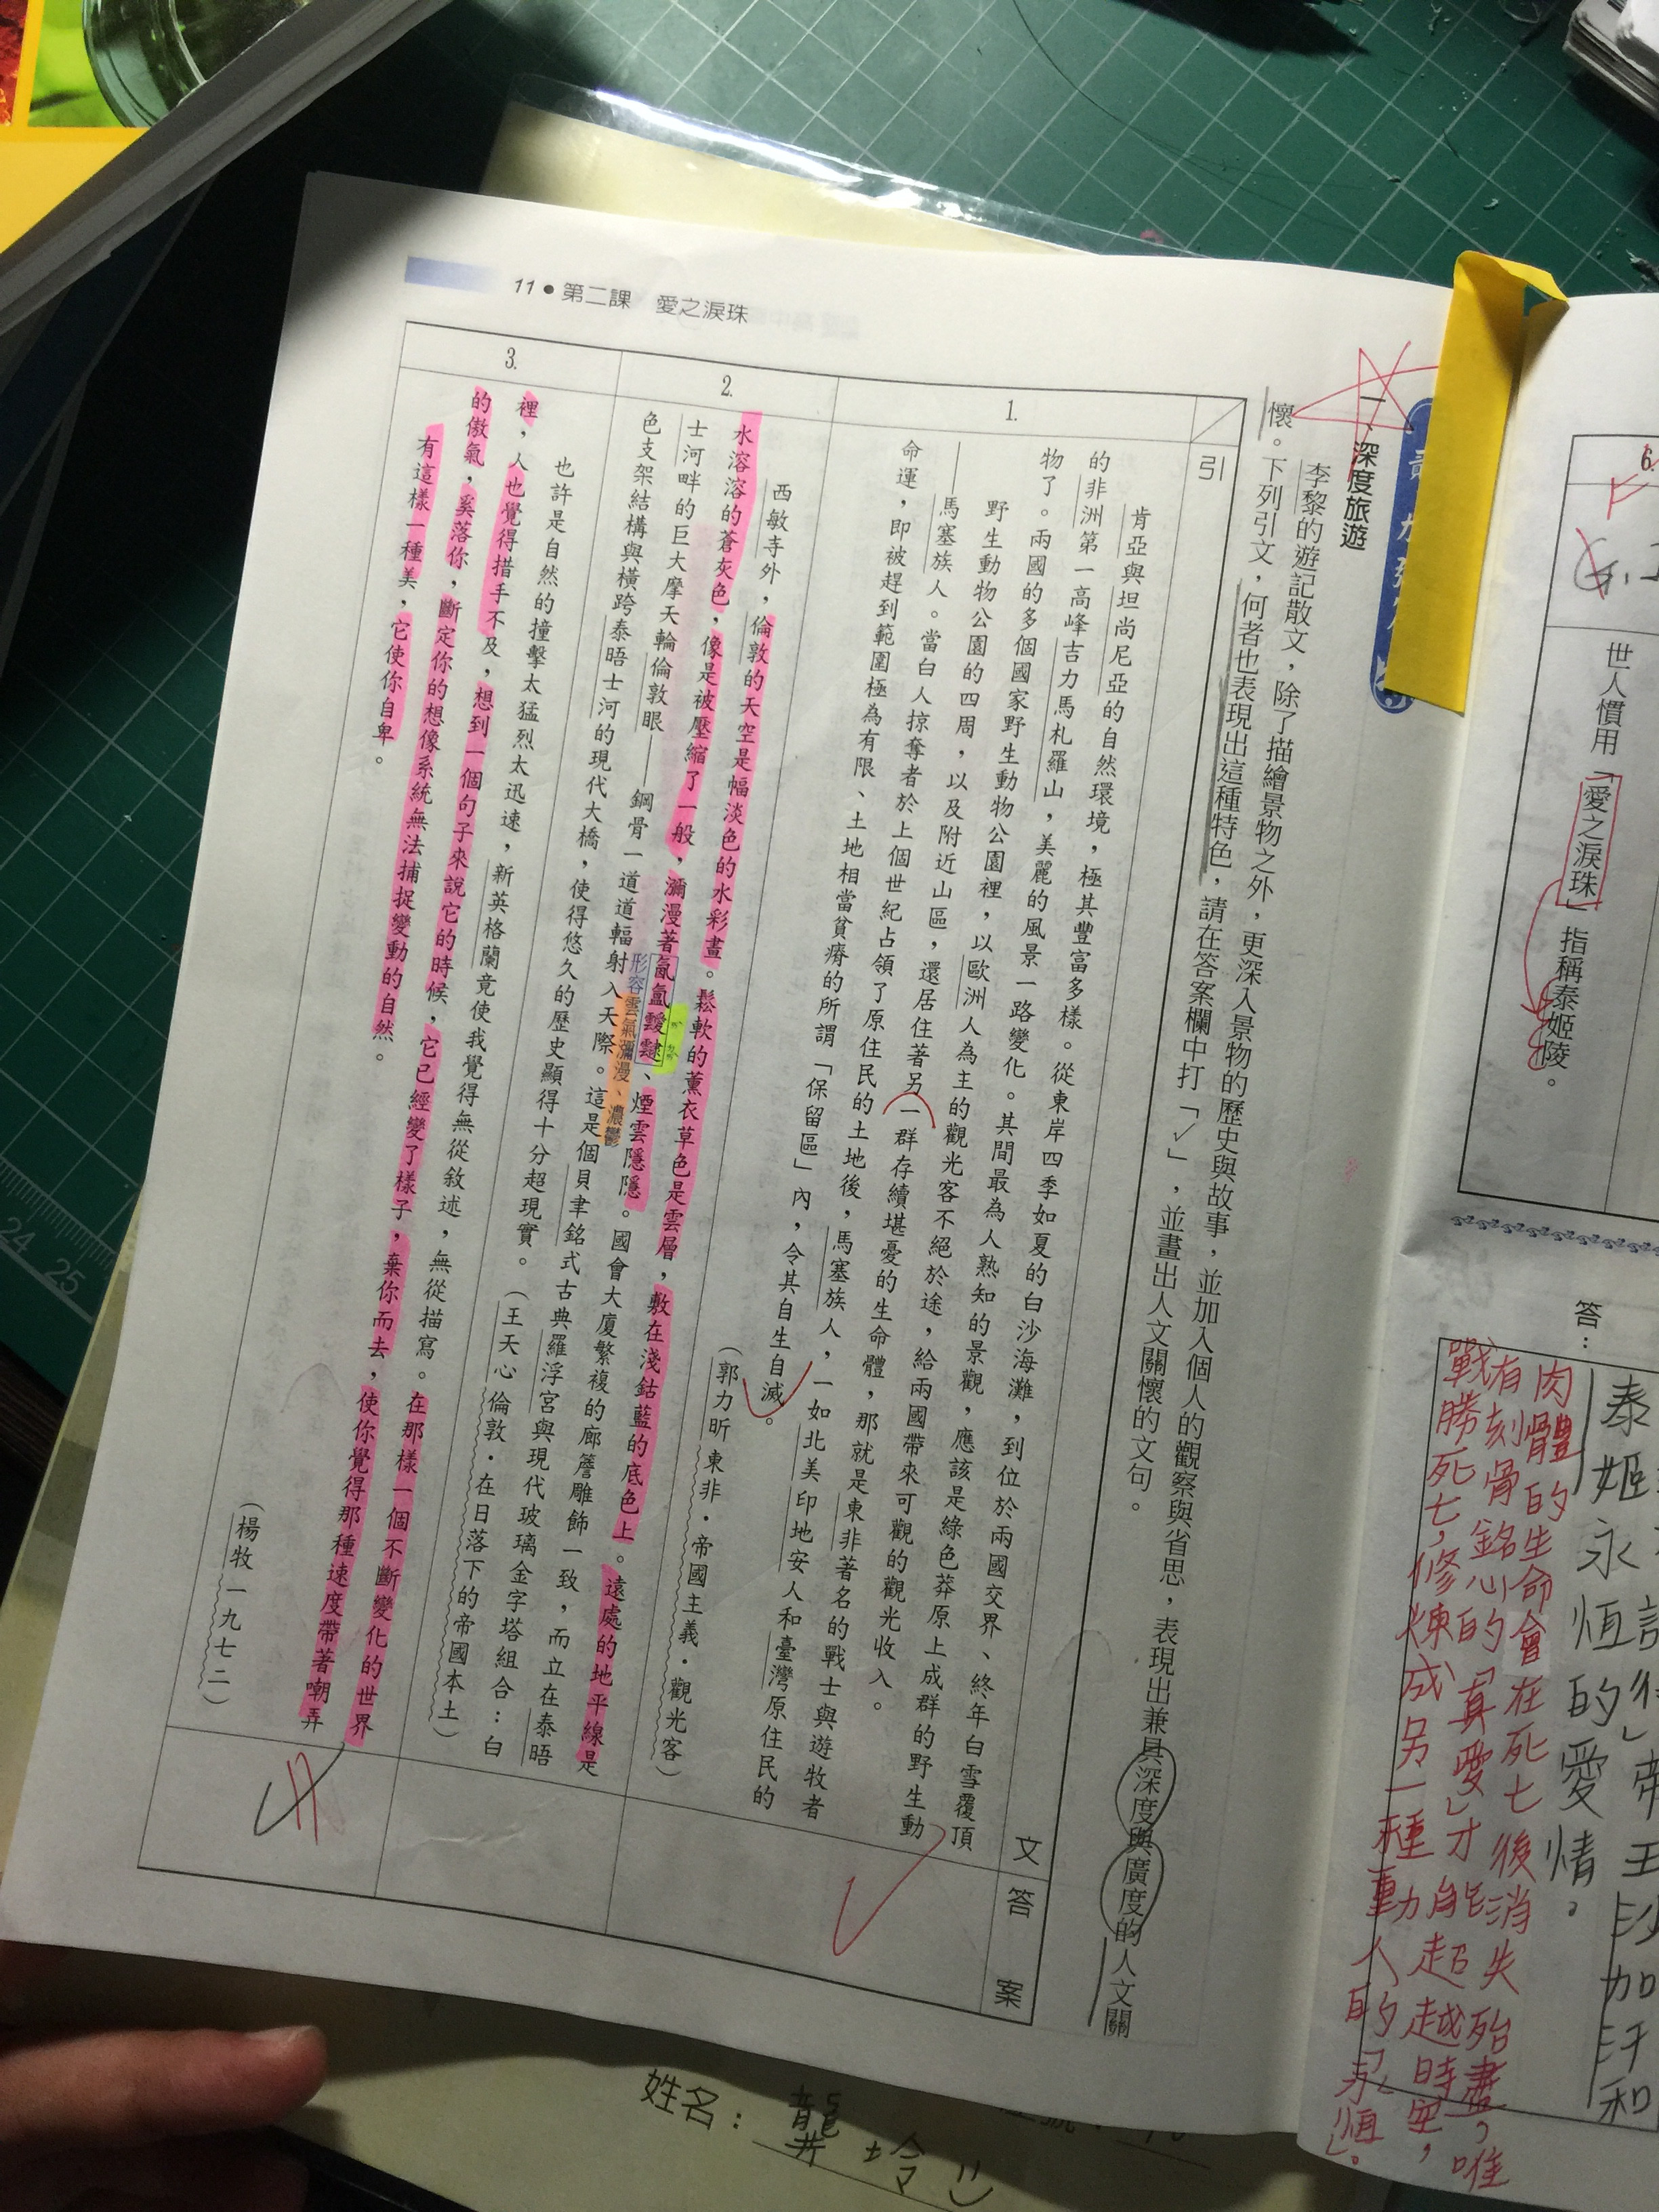 世人慣用「愛之淚珠」指稱泰姬陵。
答：
泰姬
永恆的愛情。
肉體的生命會在死亡後消失殆盡，唯
有刻骨銘心的「真愛」才能超越時空，
戰勝死亡，修煉成另一種動人的「永恆」。
一、深度旅遊
李黎的遊記散文，除了描繪景物之外，更深入景物的歷史與故事，並加入個人的觀察與省思，表現出兼具深度與廣度的人文關
懷。下列引文，何者也表現出這種特色，請在答案欄中打「✓」，並畫出人文關懷的文句。
引文
答案
1.
肯亞與坦尚尼亞的自然環境，極其豐富多樣。從東岸四季如夏的白沙海灘，到位於兩國交界、終年白雪覆頂
的非洲第一高峰吉力馬札羅山，美麗的風景一路變化。其間最為人熟知的景觀，應該是綠色莽原上成群的野生動
物了。兩國的多個國家野生動物公園裡，以歐洲人為主的觀光客不絕於途，給兩國帶來可觀的觀光收入。
野生動物公園的四周，以及附近山區，還居住著另一群存續堪憂的生命體，那就是東非著名的戰士與遊牧者
——馬塞族人。當白人掠奪者於上個世紀占領了原住民的土地後，馬塞族人，一如北美印地安人和臺灣原住民的
命運，即被趕到範圍極為有限、土地相當貧瘠的所謂「保留區」內，令其自生自滅。
（郭力昕東非．帝國主義．觀光客）
2.
西敏寺外，倫敦的天空是幅淡色的水彩畫。鬆軟的薰衣草色是雲層，敷在淺鈷藍的底色上。遠處的地平線是
水溶溶的蒼灰色，像是被壓縮了一般，瀰漫著氤氳靉靆、煙雲隱隱。國會大廈繁複的廊簷雕飾一致，而立在泰晤
形容雲氣瀰漫、濃鬱
士河畔的巨大摩天輪倫敦眼——鋼骨一道道輻射入天際。這是個貝聿銘式古典羅浮宮與現代玻璃金字塔組合：白
色支架結構與橫跨泰晤士河的現代大橋，使得悠久的歷史顯得十分超現實。（王天心倫敦．在日落下的帝國本土）
3.
也許是自然的撞擊太猛烈太迅速，新英格蘭竟使我覺得無從敘述，無從描寫。在那樣一個不斷變化的世界
裡，人也覺得措手不及，想到一個句子來說它的時候，它已經變了樣子，棄你而去，使你覺得那種速度帶著嘲弄
的傲氣，奚落你，斷定你的想像系統無法捕捉變動的自然。
有這樣一種美，它使你自卑。
（楊牧一九七二）
11●第二課 愛之淚珠
姓名：